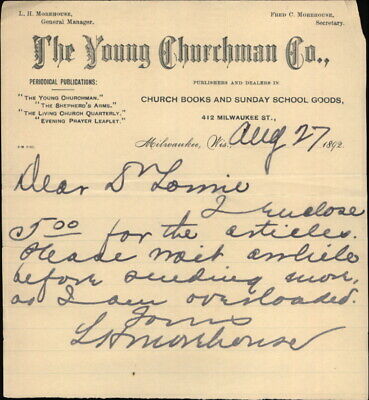 L. H. MOREHOUSE,
General Manager.
FRED C. MOREHOUSE,
Secretary.
The Young Churchman Co.,
PERIODICAL PUBLICATIONS:
"THE YOUNG CHURCHMAN."
"THE SHEPHERD'S ARMS."
"THE LIVING CHURCH QUARTERLY."
"EVENING PRAYER LEAFLET."
PUBLISHERS AND DEALERS IN
CHURCH BOOKS AND SUNDAY SCHOOL GOODS,
412 MILWAUKEE ST.,
Milwaukee, Wis. Aug 27 1892.
Dear Dr
I enclose
5.00 for the articles.
Please wait awhile
before sending more,
as I am overloaded.
Yours
L H Morehouse